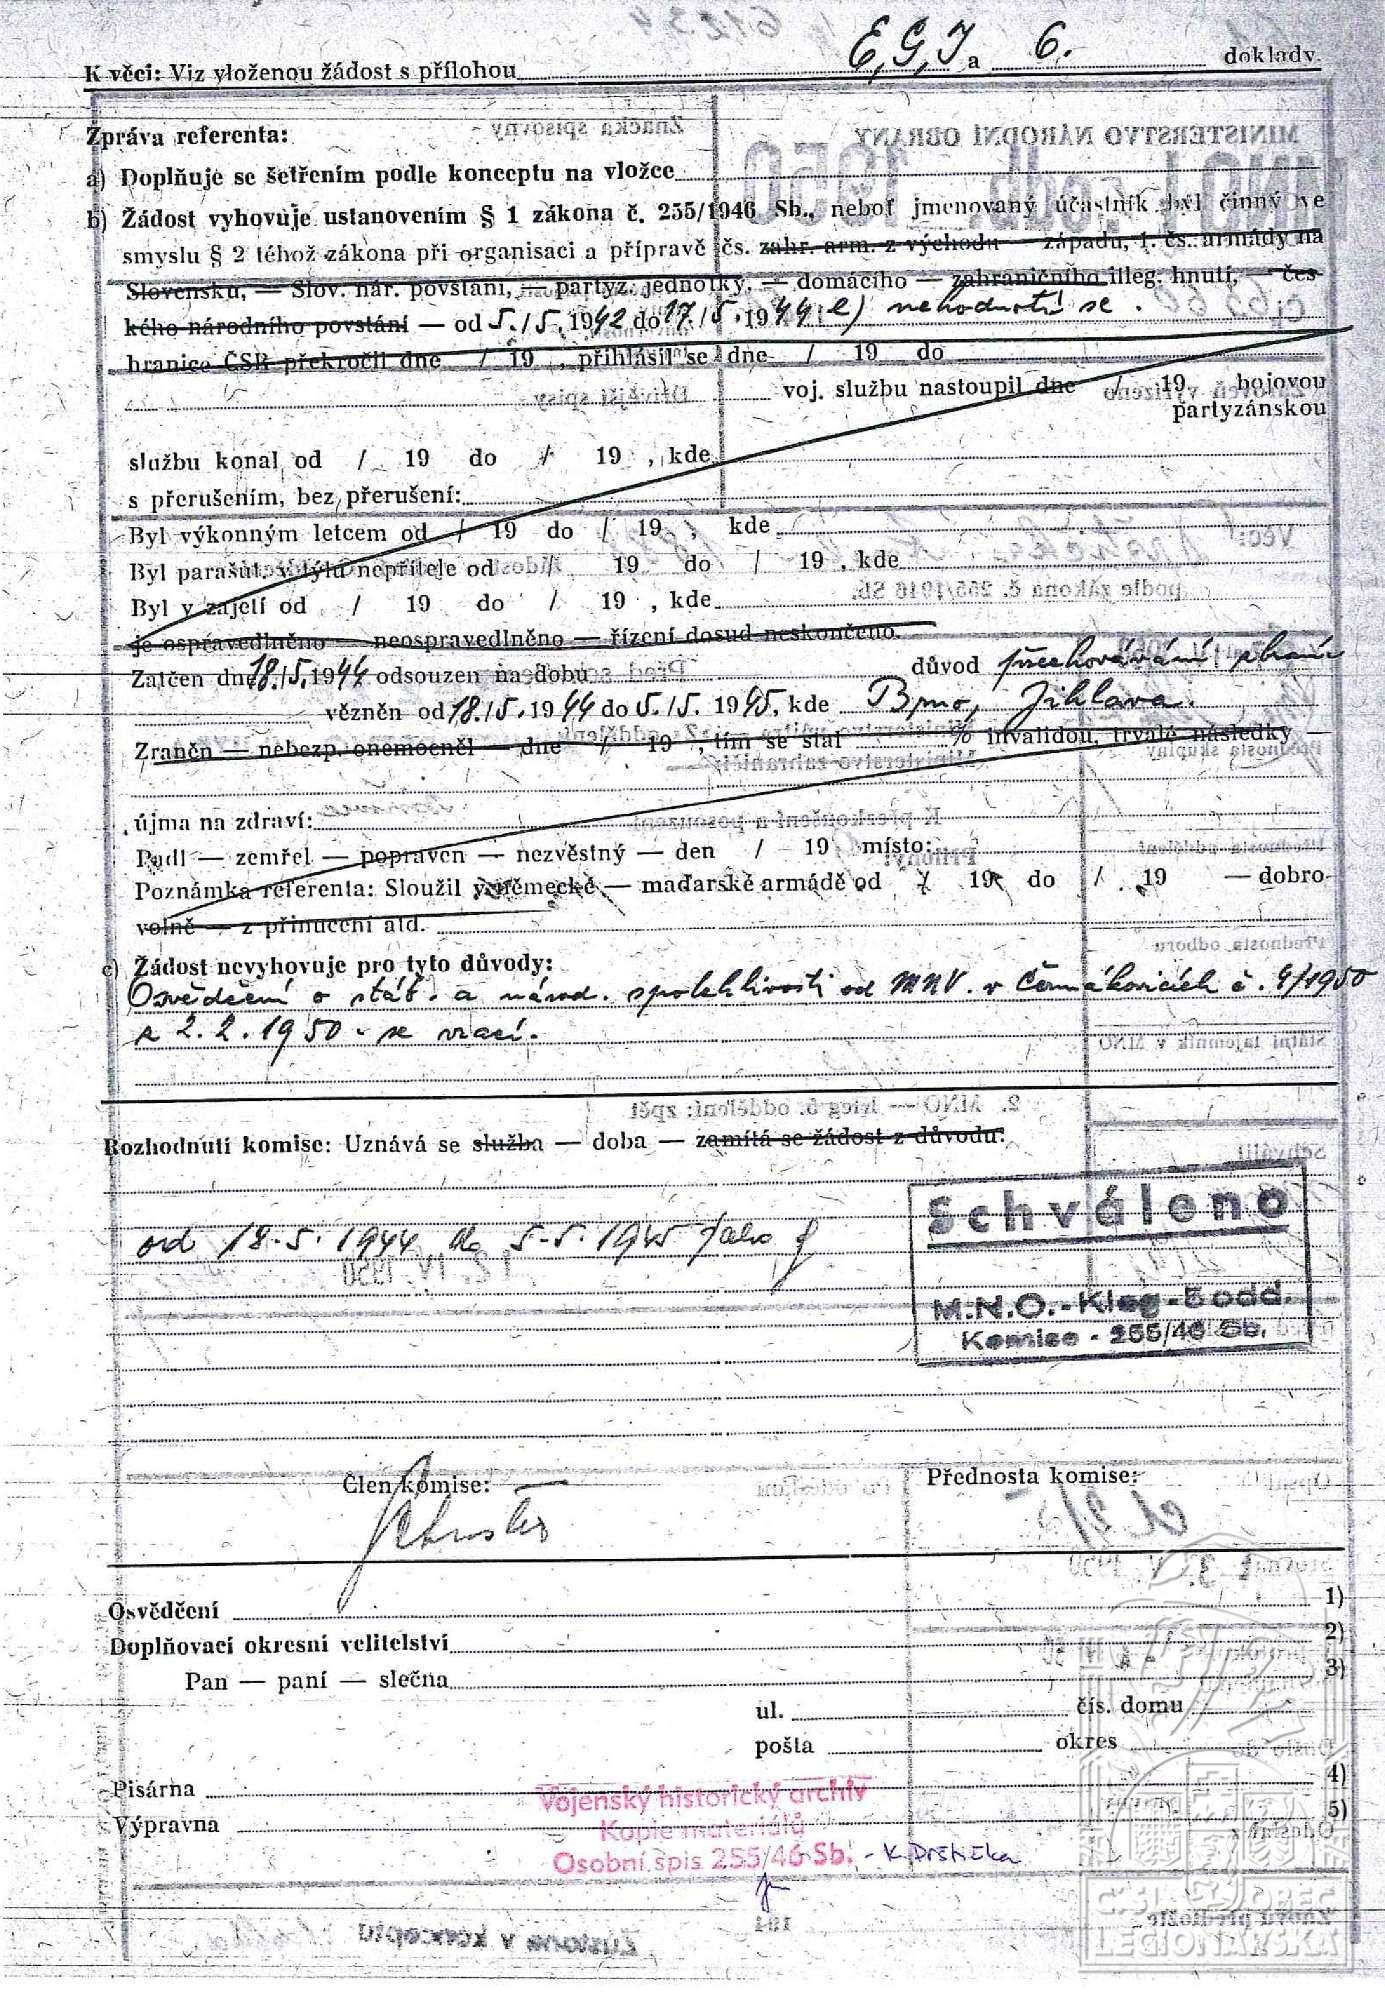 K věci: Viz vloženou žádost s přílohou E, G, J a 6. doklady.
Zpráva referenta:
a) Doplňuje se šetřením podle konceptu na vložce
b) Žádost vyhovuje ustanovením § 1 zákona č. 255/1946 Sb., neboť jmenovaný účastník byl činný ve
smyslu § 2 téhož zákona při organisaci a přípravě čs. zahr. arm. z východu — západu, 1. čs. armády na
Slovensku, — Slov. nár. povstání, — partyz. jednotky, — domácího — zahraničního illeg. hnutí, — čes-
kého národního povstání — od 5./5. 1942 do 17./5. 1944 (e) nehodnotí se.
hranice ČSR překročil dne / 19 , přihlásil se dne / 19 do
voj. službu nastoupil dne / 19 bojovou
partyzánskou
službu konal od / 19 do / 19 , kde
s přerušením, bez přerušení:
Byl výkonným letcem od / 19 do / 19 , kde
Byl parašut. v týlu nepřítele od / 19 do / 19 , kde
Byl v zajetí od / 19 do / 19 , kde
je ospravedlněno — neospravedlněno — řízení dosud neskončeno.
Zatčen dne 18./5. 1944 odsouzen na dobu důvod přechovávání zbraně
vězněn od 18./5. 1944 do 5./5. 1945, kde Brno, Jihlava.
Zraněn — nebezp. onemocněl — dne / 19 , tím se stal % invalidou, trvalé následky —
újma na zdraví:
Padl — zemřel — popraven — nezvěstný — den / 19 místo:
Poznámka referenta: Sloužil v německé — maďarské armádě od / 19 do / 19 — dobro-
volně — z přinucení atd.
c) Žádost nevyhovuje pro tyto důvody:
Osvědčení o stát. a národ. spolehlivosti od MNV. v Čermákovicích č. 4/1950
z 2.2.1950 - se vrací.
Rozhodnutí komise: Uznává se služba — doba — zamítá se žádost z důvodu:
od 18.5.1944 do 5.5.1945 jako f
Schváleno
M.N.O.-Kleg-5odd.
Komise - 255/46 Sb.
Člen komise: Přednosta komise:
Osvědčení 1)
Doplňovací okresní velitelství 2)
Pan — paní — slečna 3)
ul. čís. domu
pošta okres
Pisárna 4)
Výpravna 5)
Vojenský historický archiv
Kopie materiálů
Osobní spis 255/46 Sb. - K. Drštička
ČSL. OBEC
LEGIONÁŘSKÁ